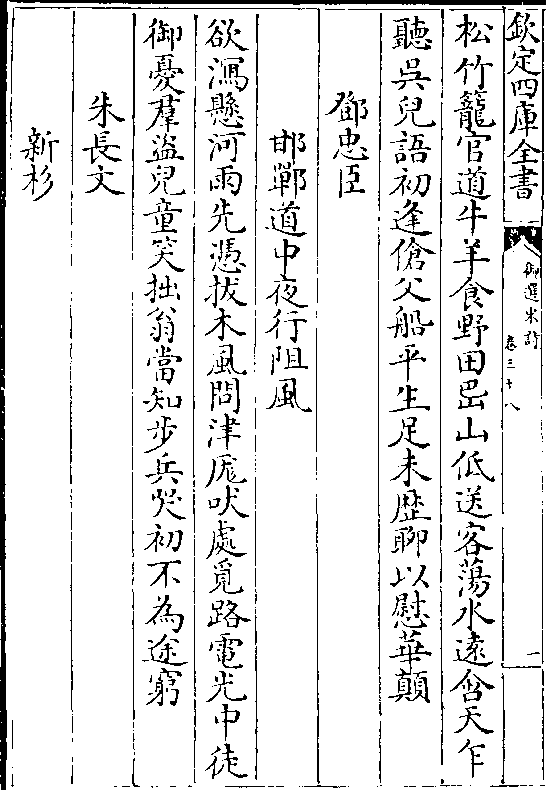 欽定四庫全書
御選宋詩
卷三十八
一
松竹籠官道牛羊食野田嵒山低送客蕩水遠含天乍
聽吳兒語初逢傖父船平生足未歴聊以慰華顛
鄧忠臣
邯鄲道中夜行阻風
欲瀉懸河雨先憑拔木風問津厖吠處覓路電光中徒
御憂羣盜兒童笑拙翁當知步兵哭初不為途窮
朱長文
新杉